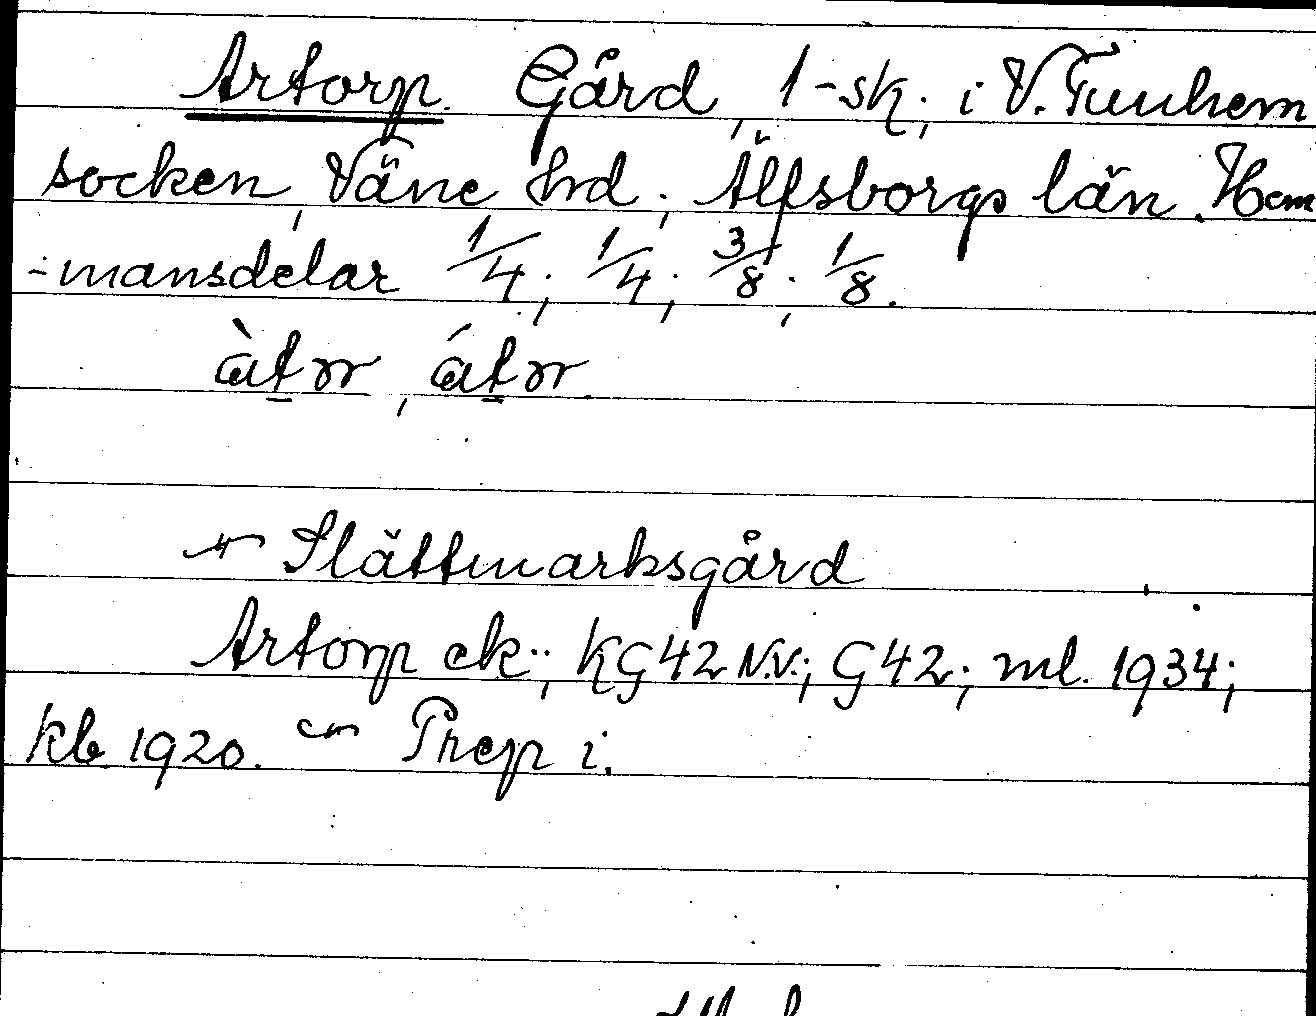 Artorp. Gård, 1-sk; i V. Tunhem
socken, Väne hd; Älfsborgs län. Hem
-mansdelar 1/4; 1/4; 3/8; 1/8.
àtor, átor
Slättmarksgård
Artorp ek.; KG42 N.V.; G42; ml. 1934;
kb 1920. Prep i.